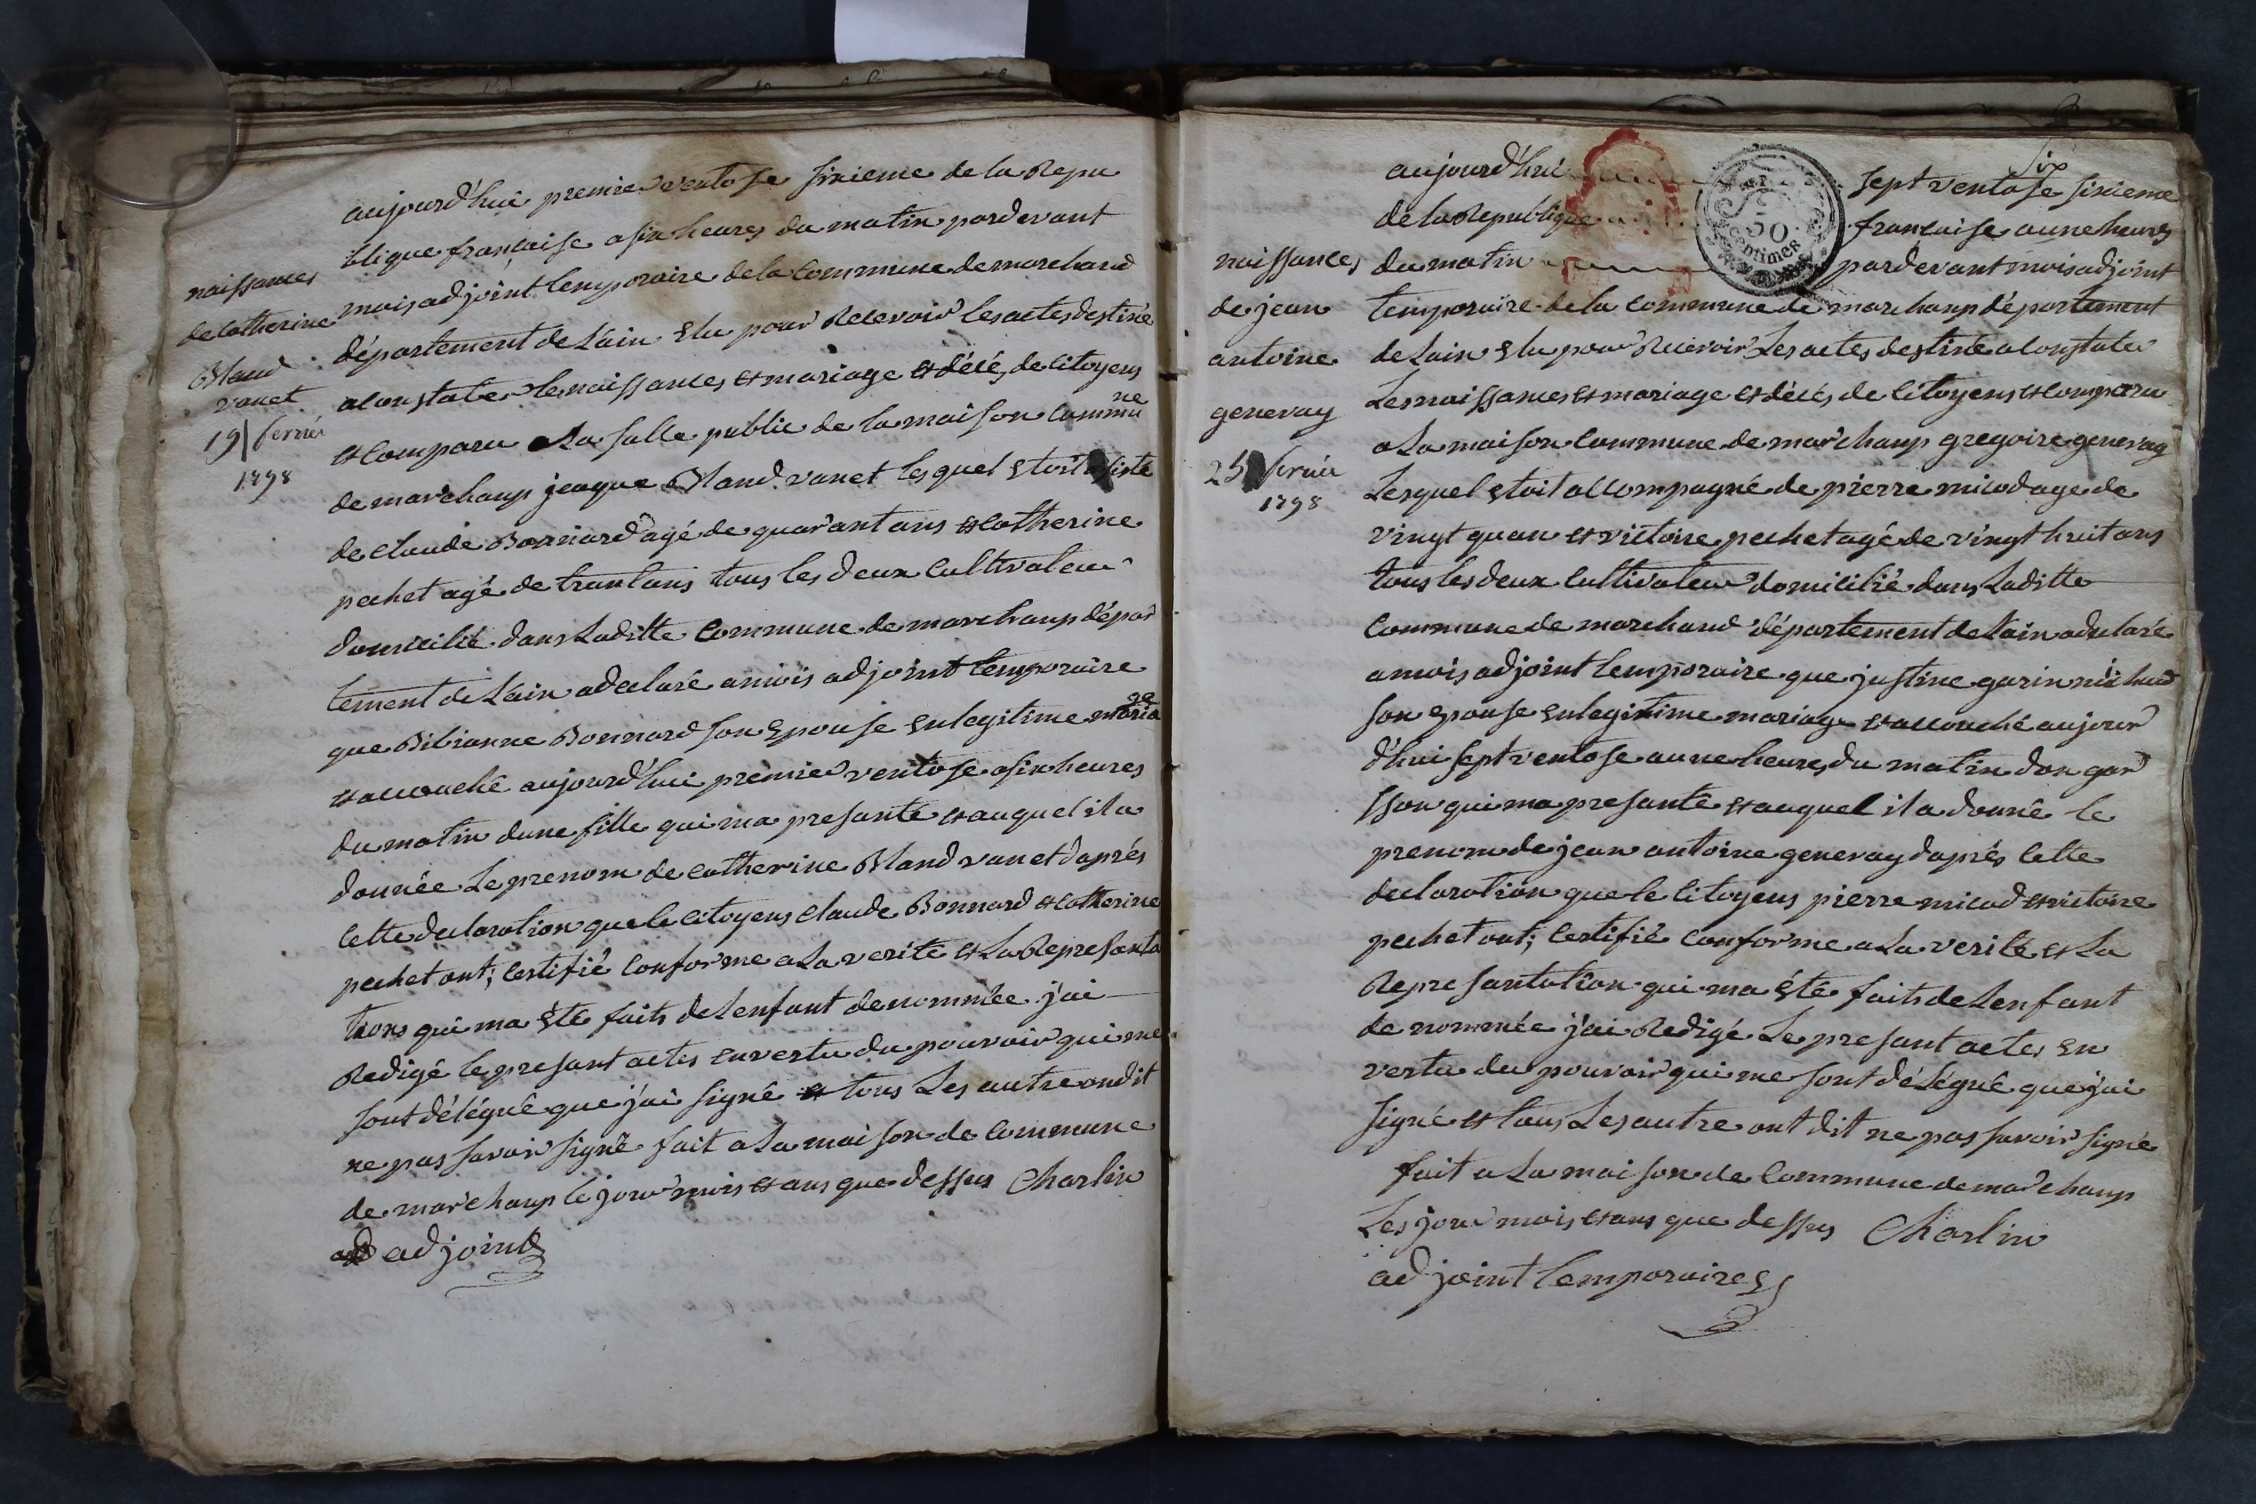 naissances
de catherine
Bland
vanet
19 fevrier
1798
aujourd'hui premier ventose sixieme de la Repu
blique francaise a six heures du matin pardevant
mois adjoint temporaire de la Commune de marchand
département de L'ain Elu pour Recevoir les actes destiné
a constater les naissances et mariage et décé, de citoyens
et comparu a La salle public de la maison commu
ne
de marchamp jeaque Bland vanet lesquel Etoit asisté
de claude Bonnard agé de quarant ans et catherine
pechet agé de trantans tous les deux Cultivateur
domicilié dans Laditte Commune de marchamp dépar
tement de L'ain a declaré a mois adjoint temporaire
que Bibianne Bonnard son Epouse en legitime maria
ge
et accouché aujourd'hui premier ventose a six heures
du matin dune fille qui ma presanté et auquel il a
donnée Le prenom de catherine Bland vanet daprés
cette declaration que le citoyens claude Bonnard et catherine
pechet ont; certifié conforme a La verité et La Represanta
tions qui ma Eté faits de Lenfant denommée j'ai
Redigé le presant actes en vertu du pouvoir qui me
sont délégué que j'ai signé et tous Les autre ondit
ne pas savoir signé fait a La maison de Commune
de marchamp le jour mois et ans que dessus Charlin
adjoint
six
naissances
de jean
antoine
genevay
25 fevrier
1798
50
centimes
aujourd'hui sept ventose sixieme
de la Republique francaise a une heures
du matin pardevant mois adjoint
temporaire de la commune de marchamp département
de Lain Elu pour Recevoir Les actes destiné a constater
Les naissances et mariage et décés, de citoyens et comparu
a La maison commune de marchamp gregoire genevay
Lesquel Etoit accompagné de pierre micod age de
vingt quan et victoire pechet agé de vingt huit ans
tous les deux Cultivateur domicilié dans Laditte
Commune de marchand département de Lain a declaré
a mois adjoint temporaire que justine garin michud
son Epouse en legitime mariage et accouché aujour
d'hui sept ventose a une heures du matin don gar
sson qui ma presanté et auquel il a donné le
prenom de jean antoine genevay daprés cette
declaration que le citoyens pierre micod et victoire
pechet ont; certifié conforme a La verité et La
Represantation qui ma Eté faits de Lenfant
de nommée j'ai Redigé Le presant actes En
vertu du pouvoir qui me sont délégué que j'ai
signé et tous Les autre ont dit ne pas savoir signé
fait a La maison de Commune de marchamp
Les jour mois et ans que dessus Charlin
adjoint temporaires